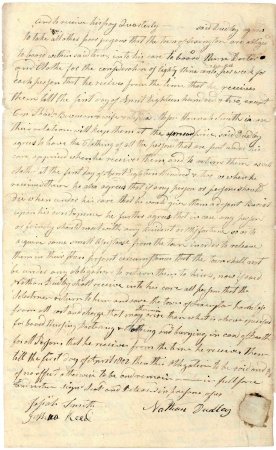 and to receive his pay Quarterly said Dudley agrees
to take all other poor persons that the town of Lexington are obliged
to board within said term, into his care to board them Doctor
and Clothe for the consideration of Eighty nine cents per week for
each person that he receives from the term that he receives
them till the first day of April Eighteen hundred & two, except
their relations will keep them at the same price. said Dudley
agrees to have the Clothing of all the persons that are put under his
care apprised when he receives them and to return them as well
clothed at the first day of April Eighteen hundred & two as when he
received them he also agrees that if any person or persons should
die when under his care that he would give them a decent Burial
upon his own expence he further agrees that in case any person
or persons should meet with any accident or misfortune so as to
require some small assistance from the town in order to release
them in their then present circumstances that the town shall not
be under any obligation to return them to him, now if said
Nathan Dudley shall receive into his care all persons that the
Selectmen return to him and save the town of Lexington harmless
from all cost and charge that may arise from what is above mentioned
for board Nursing Doctoring & Clothing and burying in case of Death
for all persons that he receives from the time he receives them
till the first day of April 1802 then this obligation to be void and
of no effect otherwise to be and remain in full force
signed sealed and delivered in presence of us
Josiah Smith
Joshua Reed
Nathan Dudley